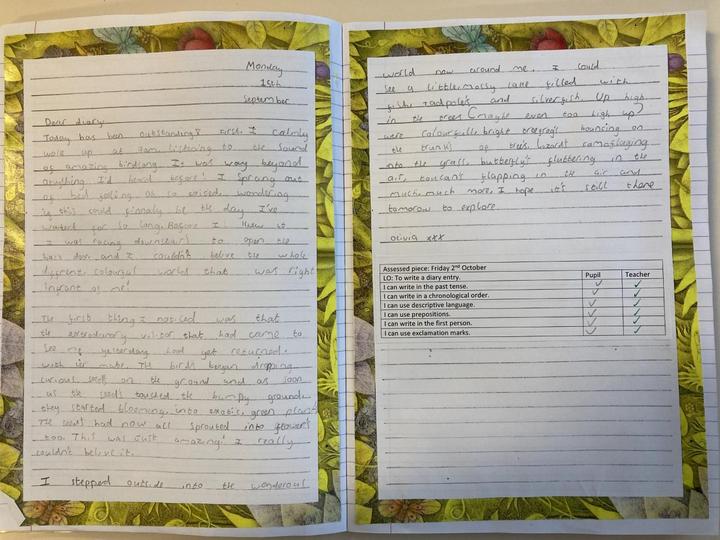 Monday
15th
September
Dear diary,
Today has been outstanding! First, I calmly
woke up at 7am listening to the sound
of amazing birdsong. It was way beyond
anything I'd heard before! I sprang out
of bed feeling oh so exised, wondering
if this could finnaly be the day I've
waited for so long. Before I knew it
I was racing downstairs to open the
back door and I couldn't belive the whole
different, colourful world that was right
infront of me!
The first thing I noticed was that
the extrodanary visitor that had came to
see me yesterday had yet returned.
with her mate. The birds began dropping
curious seeds on the ground and as soon
as the seeds touched the bumpy ground
they started blooming into exotic, green plants
The seeds had now all sprouted into flowers
too. This was just amazing! I really
couldn't belive it.
I stepped outside into the wonderous
world now around me. I could
see a little mossy lake filled with
fishy tadpole's and silverfish. Up high
in the trees (maybe even too high up)
were colourfull, bright treefrogs bouncing on
the trunks of trees, lizards camoflaging
into the grass, butterfly's fluttering in the
air, toucan's flapping in the air and
much, much more. I hope it's still there
tomorow to explore
Olivia xxx
Assessed piece: Friday 2nd October
LO: To write a diary entry. Pupil Teacher
I can write in the past tense. ✓ ✓
I can write in a chronological order. ✓ ✓
I can use descriptive language. ✓ ✓
I can use prepositions. ✓ ✓
I can write in the first person. ✓ ✓
I can use exclamation marks. ✓ ✓